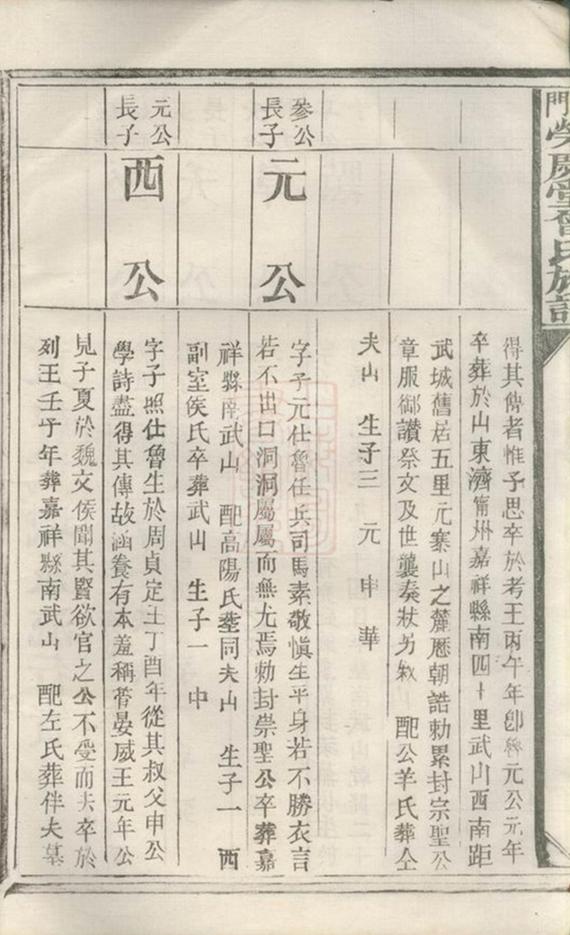 門
曾氏族譜
得其傳者惟予思卒於考王丙午年卽魯元公元年
卒葬於山東濟甯州嘉祥縣南四十里武山西南距
武城舊居五里元寨山之麓歷朝誥勅累封宗聖公
章服御讚祭文及世襲奏狀另敘 配公羊氏葬仝
夫山 生子三 元 申 華
參公長子
元公
字子元仕魯任兵司馬素敬愼生平身若不勝衣言
若不出口洞洞屬屬而無尤焉勅封崇聖公卒葬嘉
祥縣南武山 配高陽氏塟同夫山 生子一 西
副室侯氏卒葬武山 生子一 中
元公長子
西公
字子照仕魯生於周貞定王丁酉年從其叔父申公
學詩盡得其傳故涵養有本羞稱管晏威王元年公
見子夏於魏文侯聞其賢欲官之公不受而去卒於
列王壬子年葬嘉祥縣南武山 配左氏葬伴夫墓